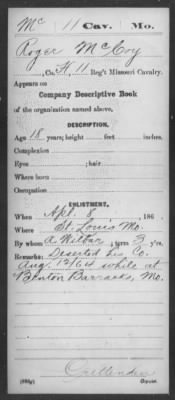 Mc 11 Cav. Mo.
Roger McCoy
, Co. H, 11 Reg't Missouri Cavalry.
Appears on
Company Descriptive Book
of the organization named above.
DESCRIPTION.
Age 18 years; height feet inches.
Complexion
Eyes ; hair
Where born
Occupation
ENLISTMENT.
When Apl. 8, 186 .
Where St. Louis Mo.
By whom A. Wilbur; term 3 y'rs.
Remarks: Deserted his Co.
Aug. 12/64 while at
Benton Barracks, Mo.
Crittenden
Copyist.